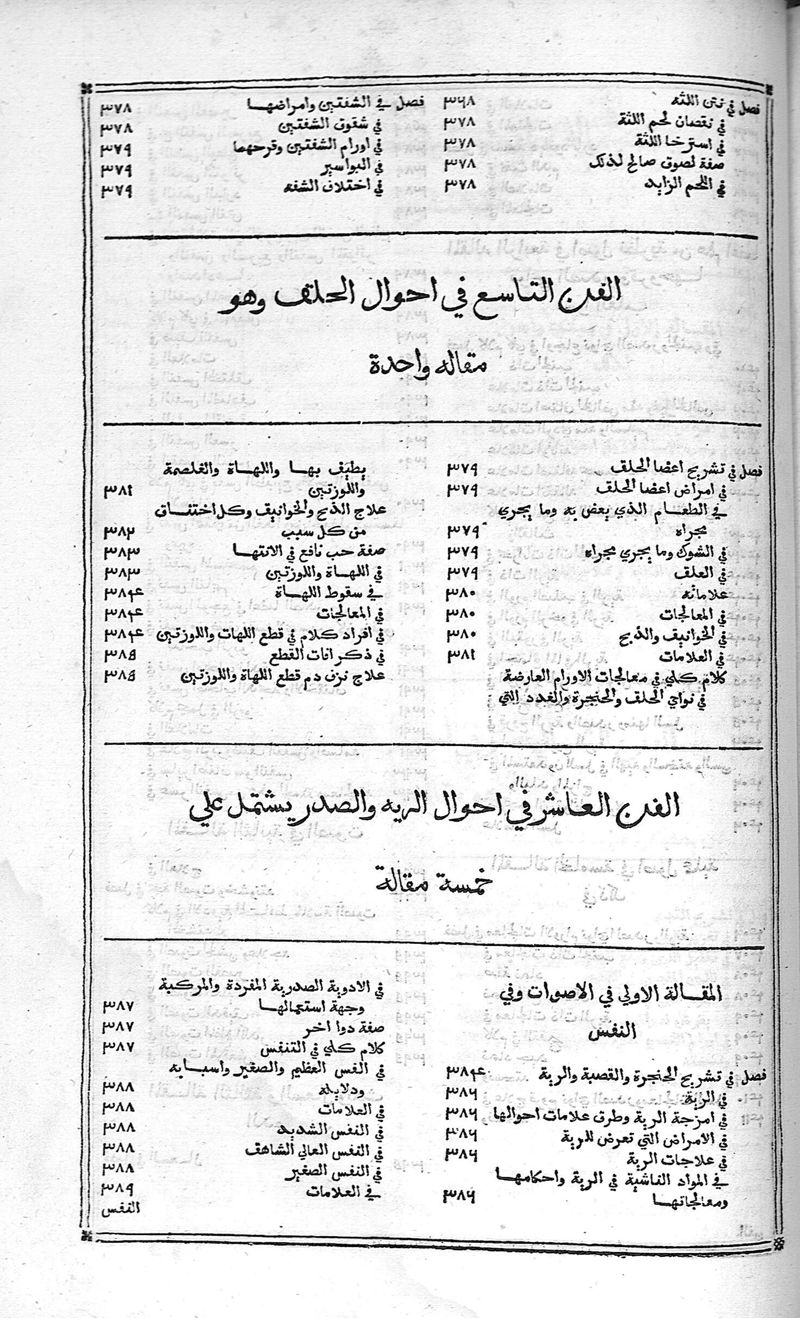 فصل في نتن اللثه ٣٦٨
في نقصان لحم اللثة ٣٧٨
في استرخا اللثة ٣٧٨
صفة لصوق صالح لذلك ٣٧٨
في اللحم الزايد ٣٧٨
فصل في الشفتين وامراضها ٣٧٨
في شقوق الشفتين ٣٧٨
في اورام الشفتين وقرحهما ٣٧٩
في البواسير ٣٧٩
في اختلاف الشفه ٣٧٩
الفن التاسع في احوال الحلق وهو
مقاله واحدة
فصل في تشريح اعضا الحلق ٣٧٩
في امراض اعضا الحلق ٣٧٩
في الطعام الذي يغص به وما يجري
مجراه ٣٧٩
في الشوك وما يجري مجراه ٣٧٩
في العلق ٣٧٩
علاماته ٣٨٠
في المعالجات ٣٨٠
في الخوانيق والذبح ٣٨٠
في العلامات ٣٨١
كلام كلي في معالجات الاورام العارضة
في نواي الحلق والحنجرة والغدد التي
يطيف بها واللهاة والغلصمة
واللوزتين ٣٨١
علاج الذبح والخوانيق وكل اختناق
من كل سبب ٣٨٢
صفة حب نافع في الانتها ٣٨٣
في اللهاة واللوزتين ٣٨٣
في سقوط اللهاة ٣٨٤
في المعالجات ٣٨٤
في افراد كلام في قطع اللهات واللوزتين ٣٨٤
في ذكر افات القطع ٣٨٥
علاج نزف دم قطع اللهاة واللوزتين ٣٨٥
الفن العاشر في احوال الريه والصدر يشتمل علي
خمسة مقالة
المقالة الاولي في الاصوات وفي
النفس
فصل في تشريح الحنجرة والقصبة والرية ٣٨٤
في الرية ٣٨٦
في امزجة الرية وطرق علامات احوالها ٣٨٦
في الامراض التي تعرض للرية ٣٨٦
في علاجات الرية ٣٨٦
في المواد الناشية في الرية واحكامها
ومعالجاتها ٣٨٦
في الادوية الصدرية المفردة والمركبة
وجهة استعمالها ٣٨٧
صفة دوا اخر ٣٨٧
كلام كلي في التنفس ٣٨٧
في النفس العظيم والصغير واسبابه
ودلايله ٣٨٨
في العلامات ٣٨٨
في النفس الشديد ٣٨٨
في النفس العالي الشاهق ٣٨٨
في النفس الصغير ٣٨٨
في العلامات ٣٨٩
النفس